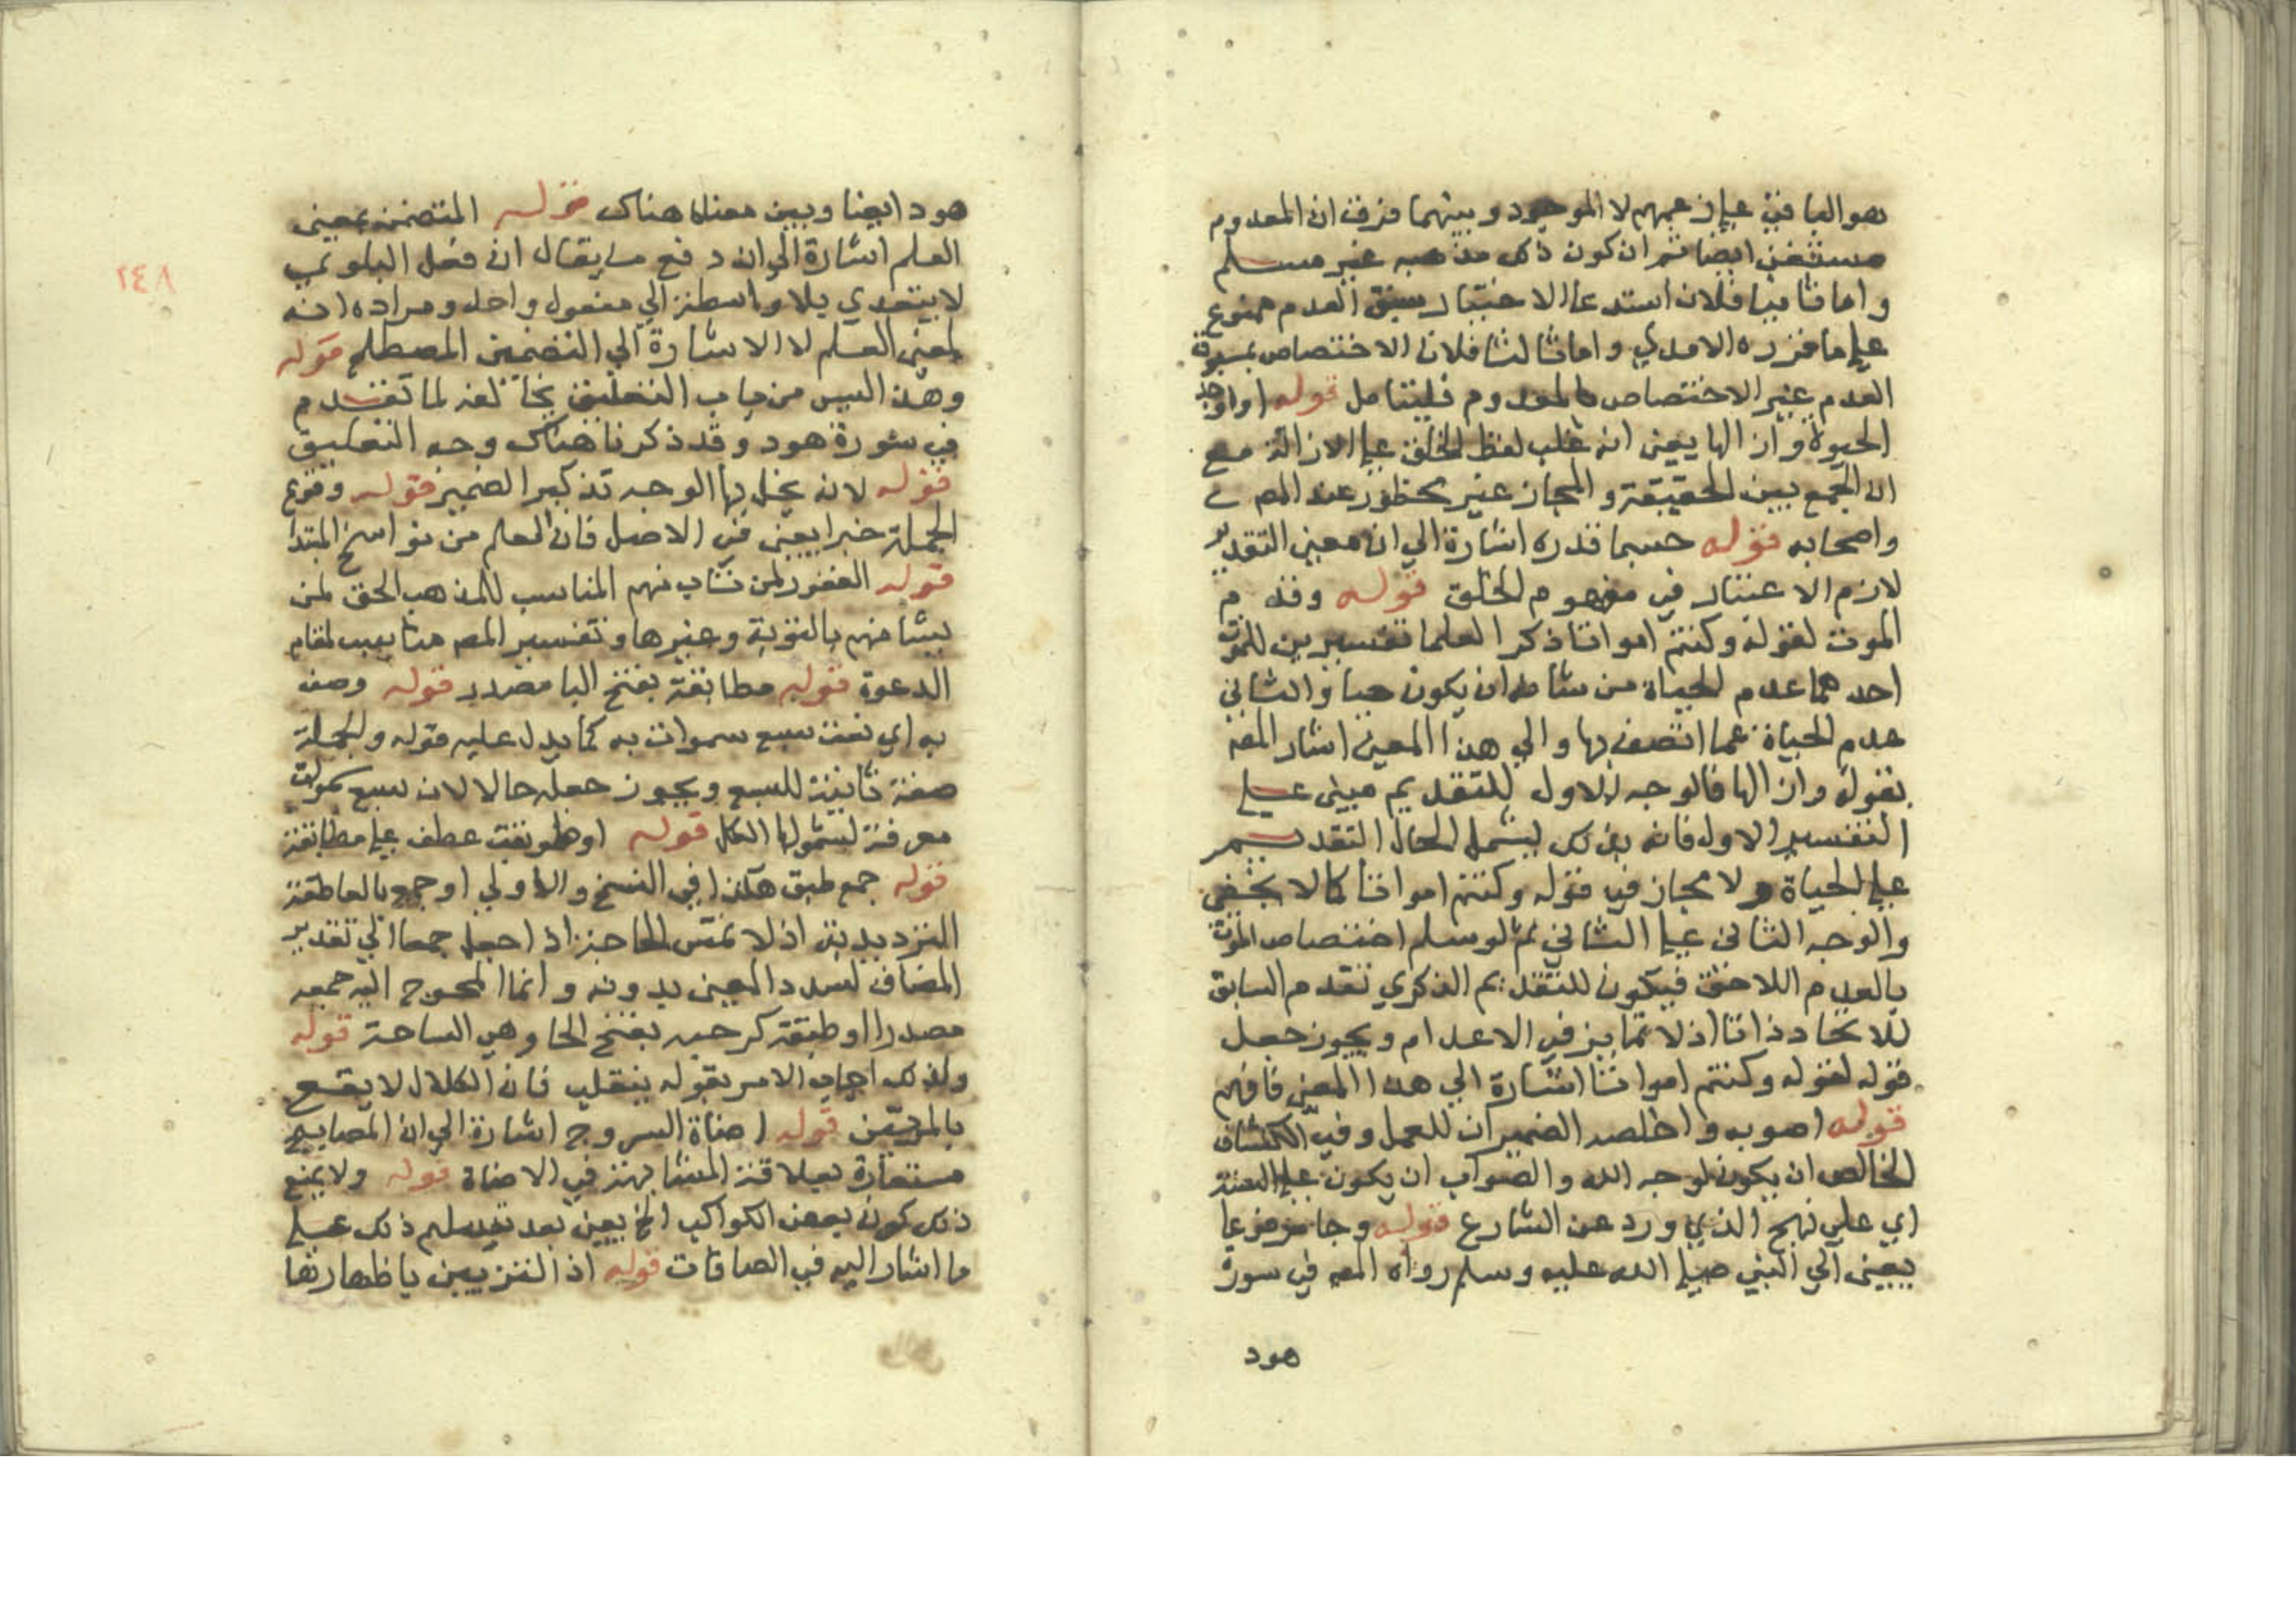 هو الباقي علي زعمهم لا الموجود وبينهما فرق ان المعدوم
ايضا ثم ان كون ذلك مذهبه غير مسلم
واما ثانيا فلان استدعا الاختيار سبق العدم ممنوع
علي ما قرره الامدي واما ثالثا فلان الاختصاص بمسبوقية
العدم غير الاختصاص بالمعدوم فليتامل قوله او اوجد
الحيوة وازالها يعني انه غلب لفظ الخلق علي الازالة مع
ان الجمع بين الحقيقة والمجاز غير محظور عند المص
واصحابه قوله حسبما قدره اشارة الي ان معني التقدير
لازم الاعتبار في مفهوم الخلق قوله وقدم
الموت لقوله وكنتم امواتا ذكر العلما تفسيرين للموت
احدهما عدم الحياة من شانه ان يكون حيا والثاني
عدم الحياة عما اتصف بها والي هذا المعني اشار المص
بقوله وازالها فالوجه الاول للتقديم مبني علي
التفسير الاول فانه بذلك يشمل الحال التقديم
علي الحياة ولا مجاز في قوله وكنتم امواتا كما لا يخفي
والوجه الثاني علي الثاني ثم لو سلم اختصاص الموت
بالعدم اللاحق فيكون للتقديم الذكري تقدم السابق
للاتحاد ذاتا اذ لا تمايز في الاعدام ويجوز جعل
قوله لقوله وكنتم امواتا اشارة الي هذا المعني فافهم
قوله اصوبه واخلصه الضميران للعمل وفي الكشاف
الخالص ان يكون لوجه الله والصواب ان يكون علي السنة
اي علي نهج الذي ورد عن الشارع قوله وجا مرفوعا
يعني الي النبي صلي الله عليه وسلم رواه المص في سورة
هود
٢٤٨
هود ايضا وبين معناه هناك قوله المتضمن بمعني
العلم اشارة الي ان دفع ما يقال ان فعل البلوي
لا يتعدي بلا واسطة الي مفعول واحد ومراده انه
لمعني العلم لا الاشارة الي التضمين المصطلح قوله
وهذا ليس من باب التعليق يخالفه لما تقدم
في سورة هود وقد ذكرنا هناك وجه التعليق
قوله لانه يخل بها الوجه تذكير الضمير قوله وقوع
الجملة خبرا يعني في الاصل فان العلم من نواسخ المبتدا
قوله الغفور لمن تاب منهم المناسب للمذهب الحق لمن
يشا منهم بالتوبة وغيرها وتفسير المص مناسب لمقام
الدعوة قوله مطابقة بفتح البا مصدر قوله وصف
به اي نعت سبع سموات به كما يدل عليه قوله والجملة
صفة ثانية للسبع ويجوز جعله حالا لان سبع سموات
معرفة لشمولها الكل قوله او طوبقت عطف علي مطابقة
قوله جمع طبق هكذا في النسخ والاولي او جمع بالعاطفة
الترديدية اذ لا تمس الحاجز اذا جعل جمعا الي تقدير
المضاف لسداد المعني بدونه وانما المحوج اليه جمعه
مصدرا او طبقة كرحبة بفتح الحا وهي الساحة قوله
ولذلك اجاب الامر بقوله ينقلب فان الكلال لا يقع
بالمرتين قوله اضاة السروج اشارة الي ان المصابيح
مستعارة بعلاقة المشابهة في الاضاة قوله ولا يمنع
ذلك كون بعض الكواكب الخ يعني بعد تسليم ذلك علي
ما اشار اليه في الصافات قوله اذ التزيين باظهارها